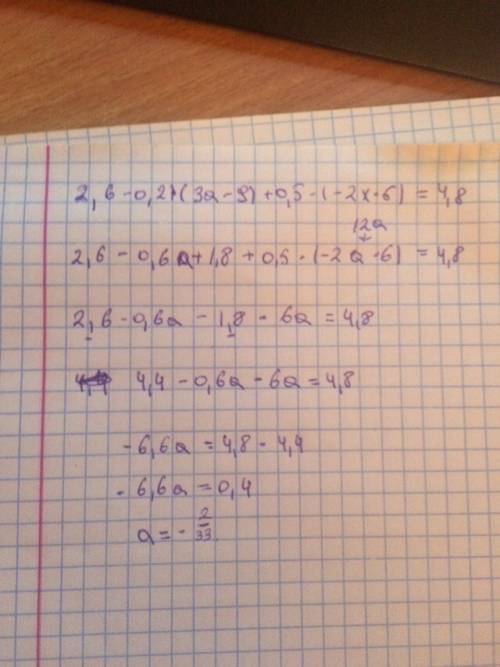 2,6 - 0,2 · (3a - 9) + 0,5 · (-2x · 6) = 4,8
12a
2,6 - 0,6a + 1,8 + 0,5 · (-2a · 6) = 4,8
2,6 - 0,6a - 1,8 - 6a = 4,8
4,4 - 0,6a - 6a = 4,8
- 6,6a = 4,8 - 4,4
- 6,6a = 0,4
a = - 2/33